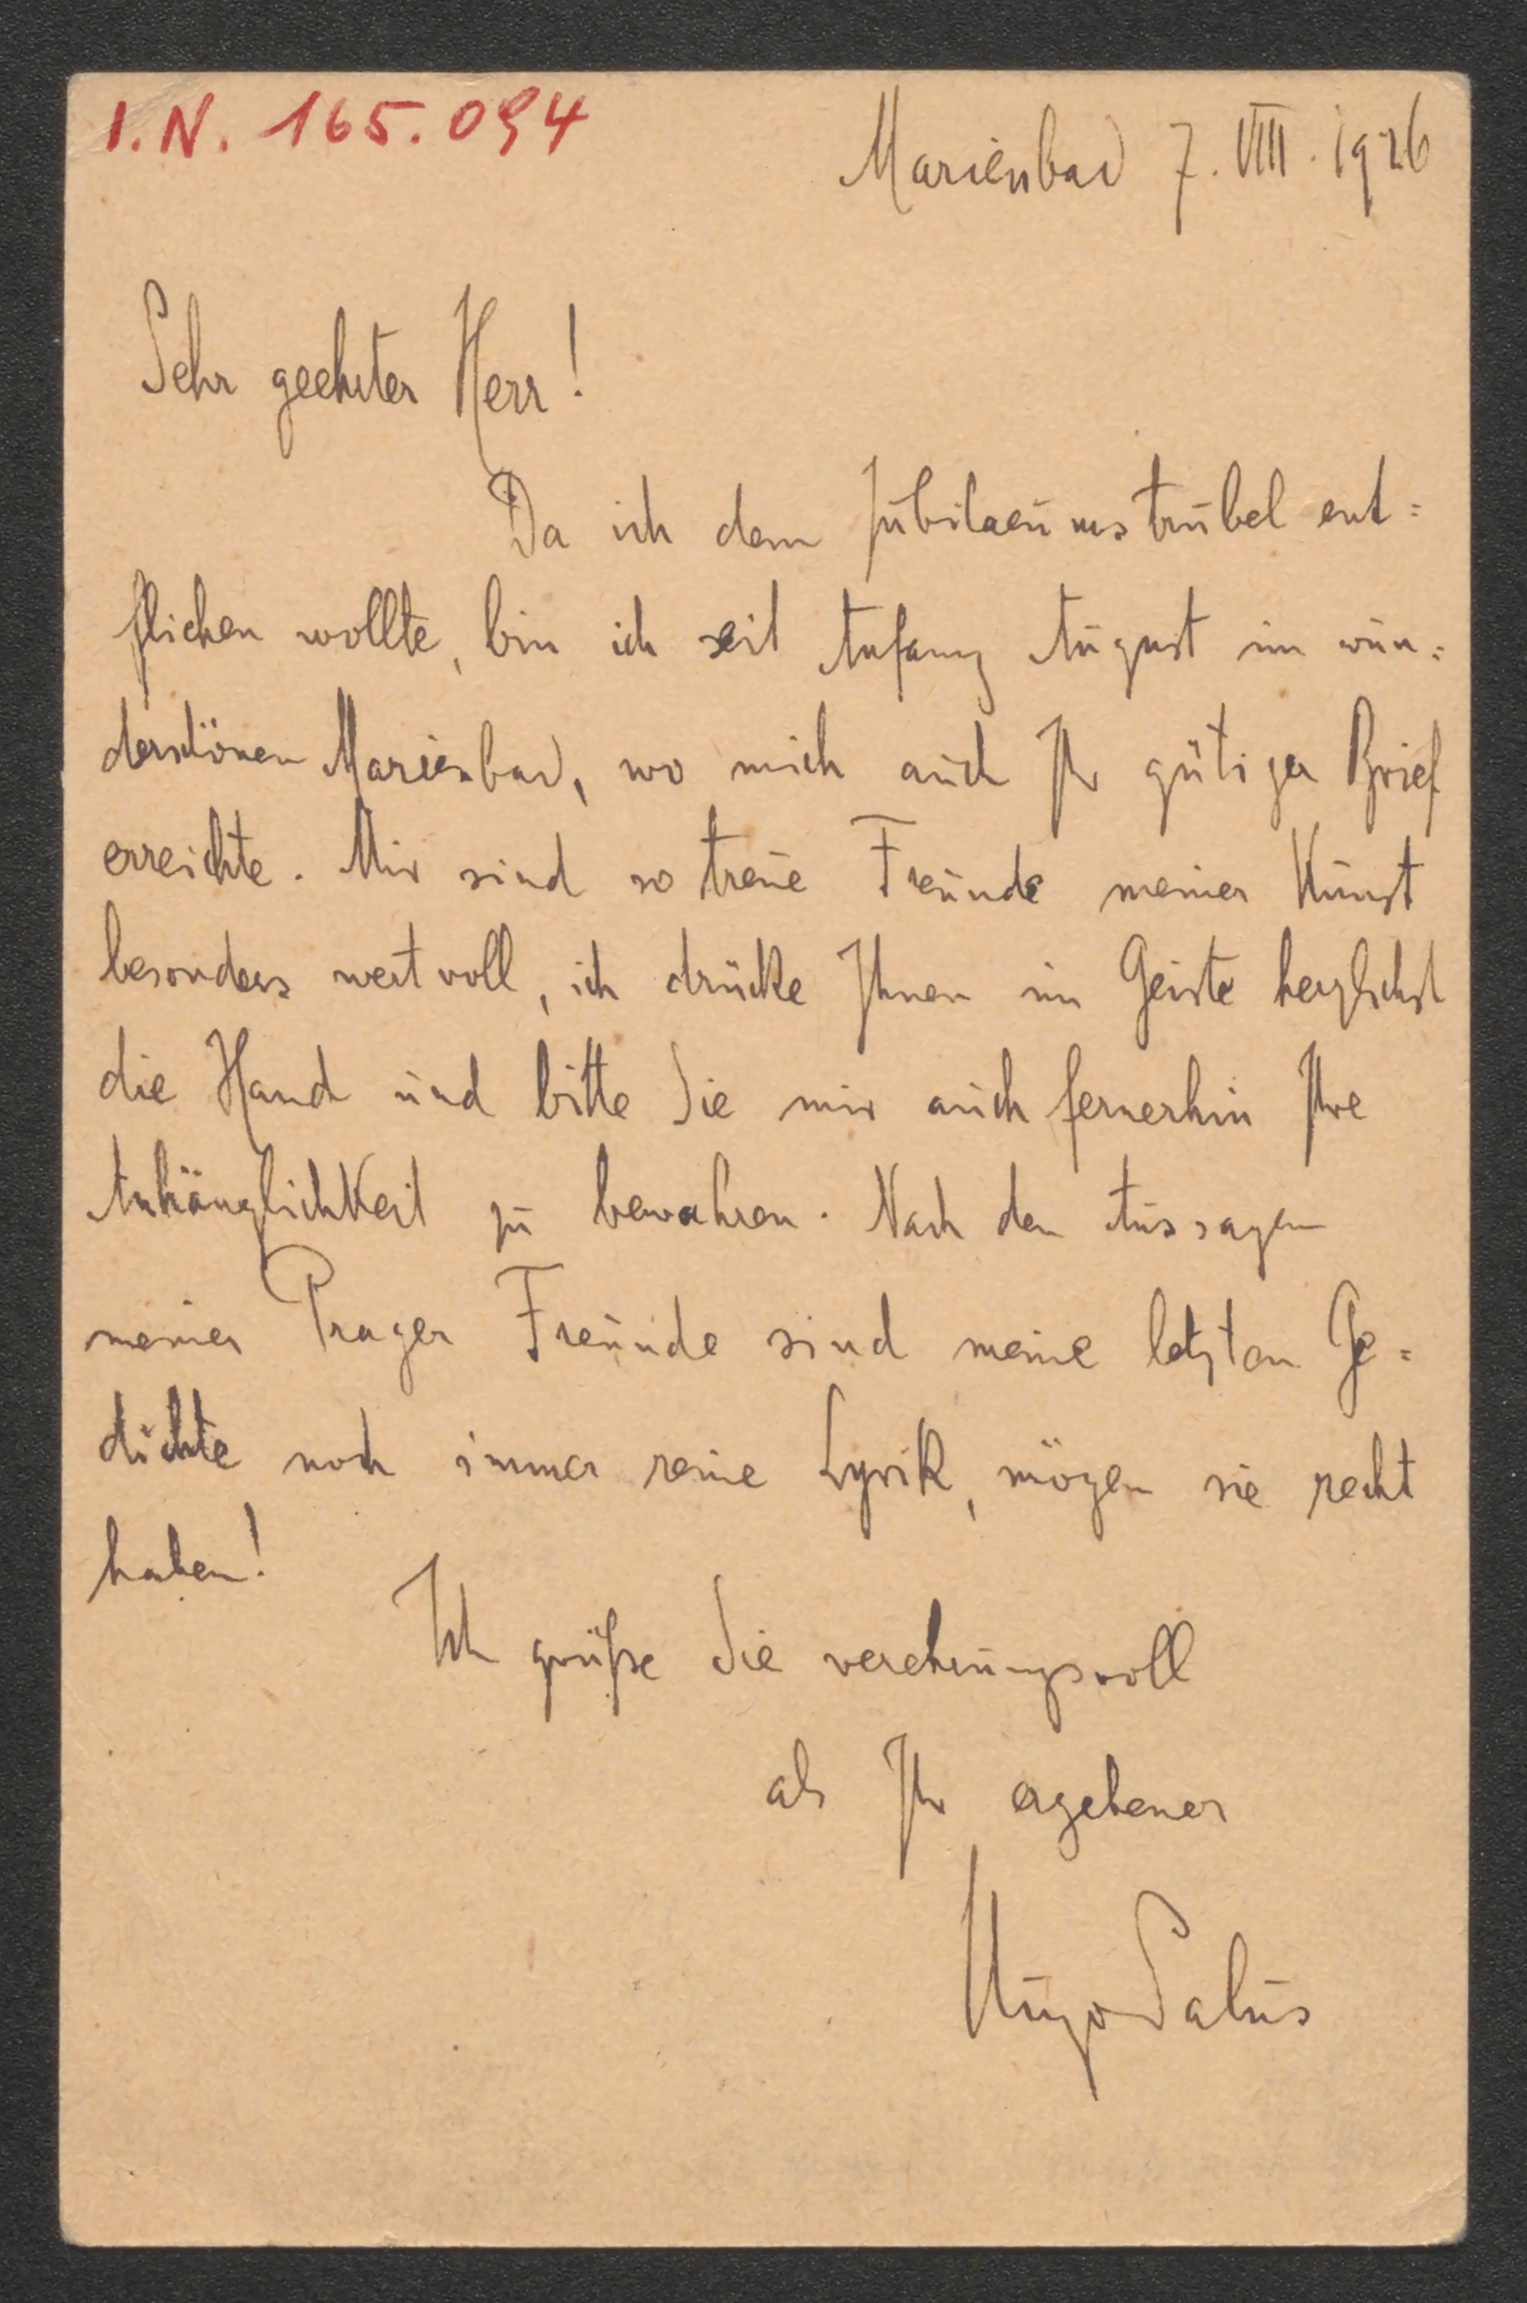 I.N. 165.094
Marienbad 7. VIII. 1926
Sehr geehrter Herr!
Da ich dem Jubilaeumstrubel ent=
fliehen wollte, bin ich seit Anfang August im wun=
derschönen Marienbad, wo mich auch Ihr gütiger Brief
erreichte. Mir sind so treue Freunde meiner Kunst
besonders wertvoll, ich drücke Ihnen im Geiste herzlichst
die Hand und bitte Sie mir auch fernerhin Ihre
Anhänglichkeit zu bewahren. Nach den Aussagen
meiner Prager Freunde sind meine letzten Ge=
dichte noch immer reine Lyrik, mögen sie recht
haben!
Ich grüße Sie verehrungsvoll
als Ihr ergebener
Hugo Salus